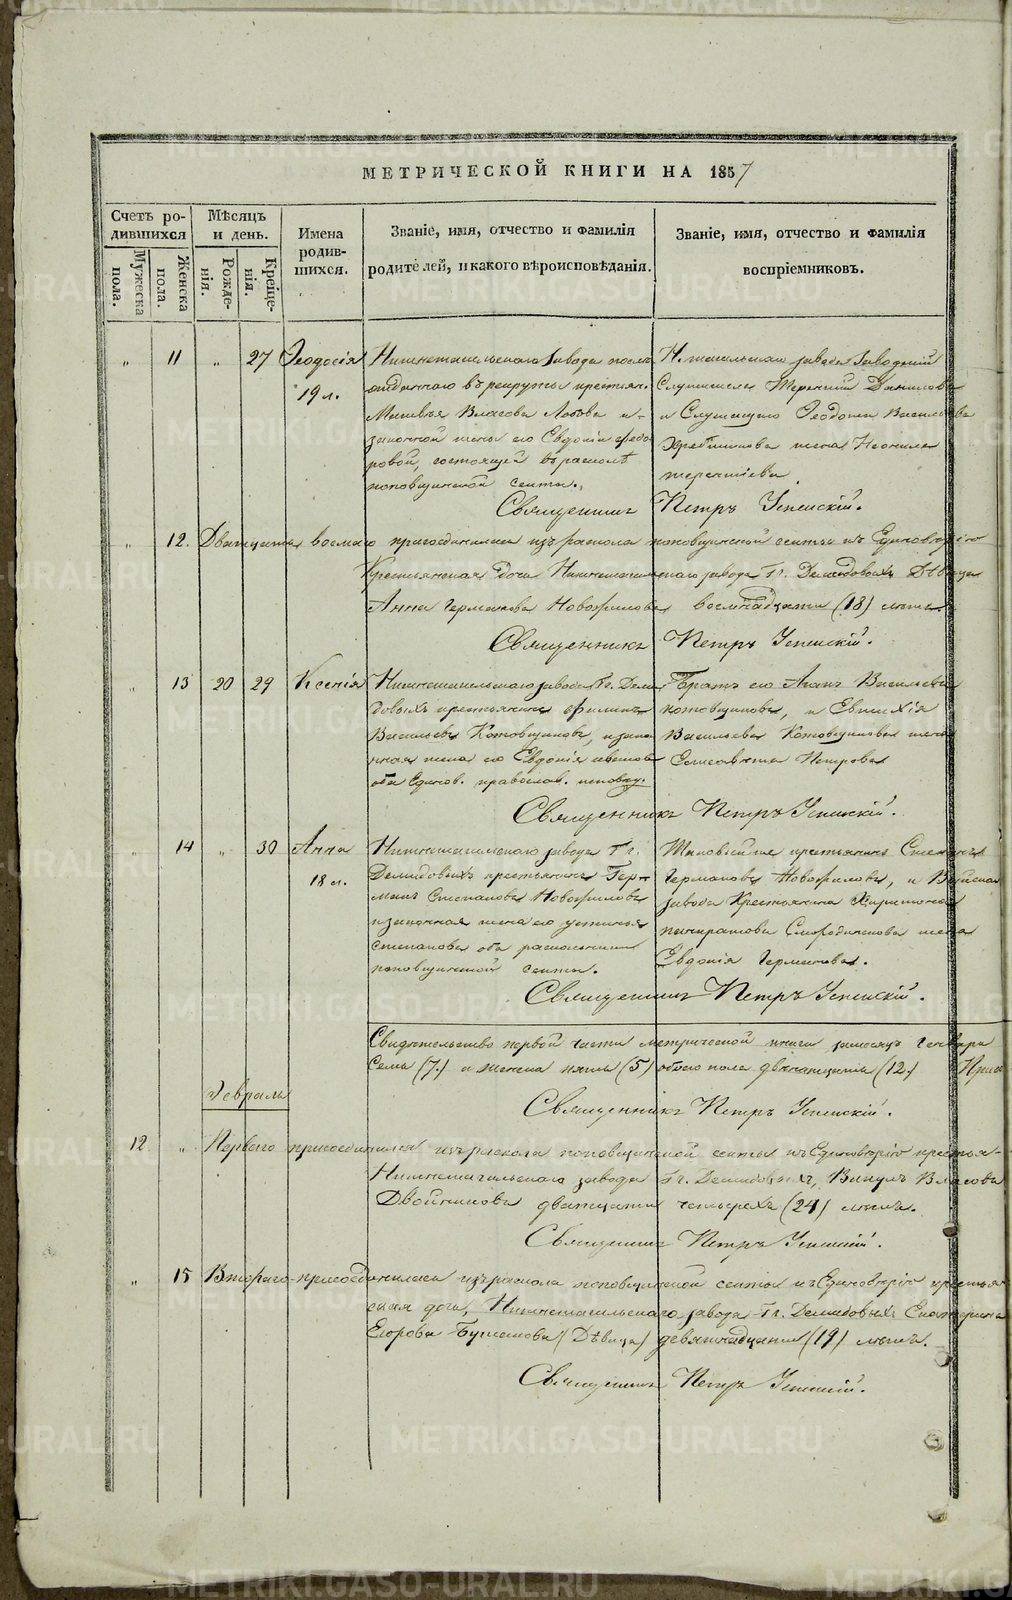 МЕТРИЧЕСКОЙ КНИГИ НА 1857
Счетъ ро-
дившихся
Мужеска пола.
Женска пола.
Мѣсяцъ
и день.
Рожде-
нія.
Креще-
нія.
Имена
родив-
шихся.
Званіе, имя, отчество и фамилія
родителей, и какого вѣроисповѣданія.
Званіе, имя, отчество и фамилія
воспріемниковъ.
" 11 " 27 Ѳеодосія
19 л.
Нижнетагильскаго завода
отданнаго въ рекруты крестьян.
Матвѣя Власова и
законной жены его Евдокіи Ѳедо
ровой, состоящей въ расколѣ
поповщинской секты.
Н. тагильскаго завода
Служителя Терентій Данилова
и Служащаго Ѳеодота Васильева
жена Неонила
терентіева
Священникъ Петръ Успенскій.
" 12. Дватцать восьмаго присоединилась изъ раскола поповщинской секты къ Единовѣрію
Крестьянская дочь Нижнетагильскаго завода Гг. Демидовыхъ Дѣвица
Анна Германова Новожилова восемнадцати (18) лѣтъ.
Священникъ Петръ Успенскій.
" 13 20 29 Ксенія
Нижнетагильскаго завода Гг. Деми
довыхъ крестьянинъ Филипъ
Васильевъ Котовщиковъ, и зако
нная жена его Евдокія
оба Единов. православ. исповѣд.
Братъ его Васильевъ
котовщиковъ, и
Васильева Котовщикова жена
Елисавета Петрова
Священникъ Петръ Успенскій.
" 14 " 30 Анна
18 л.
Нижнетагильскаго завода Гг.
Демидовыхъ крестьянинъ Гер-
манъ Степановъ Новожиловъ
и законная жена его устинья
степанова оба раскольники
поповщинской секты.
Таковой же крестьянинъ
Германовъ Новожиловъ, и
завода Крестьянина Харитона
Смородинскова жена
Евдокія Германова.
Священникъ Петръ Успенскій.
Свидѣтельство первой части метрической книги за месяцъ Генварь
Семь (7) и женска пять (5) обоего пола двѣнатцать (12)
Священникъ Петръ Успенскій.
Февраль
12 " Перваго присоединился изъ раскола поповщинской секты къ Единовѣрію крестья-
Нижнетагильскаго завода Гг. Демидовыхъ, Викулъ Власовъ
Двойниковъ дватцати четырехъ (24) лѣтъ.
Священникъ Петръ Успенскій.
" 15 Втораго присоединилась изъ раскола поповщинской секты къ Единовѣрію крестьян
ская дочь, Нижнетагильскаго завода Гг. Демидовыхъ Екатерина
Егорова (Дѣвица) девятнадцати (19) лѣтъ.
Священникъ Петръ Успенскій.
METRIKI.GASO-URAL.RU